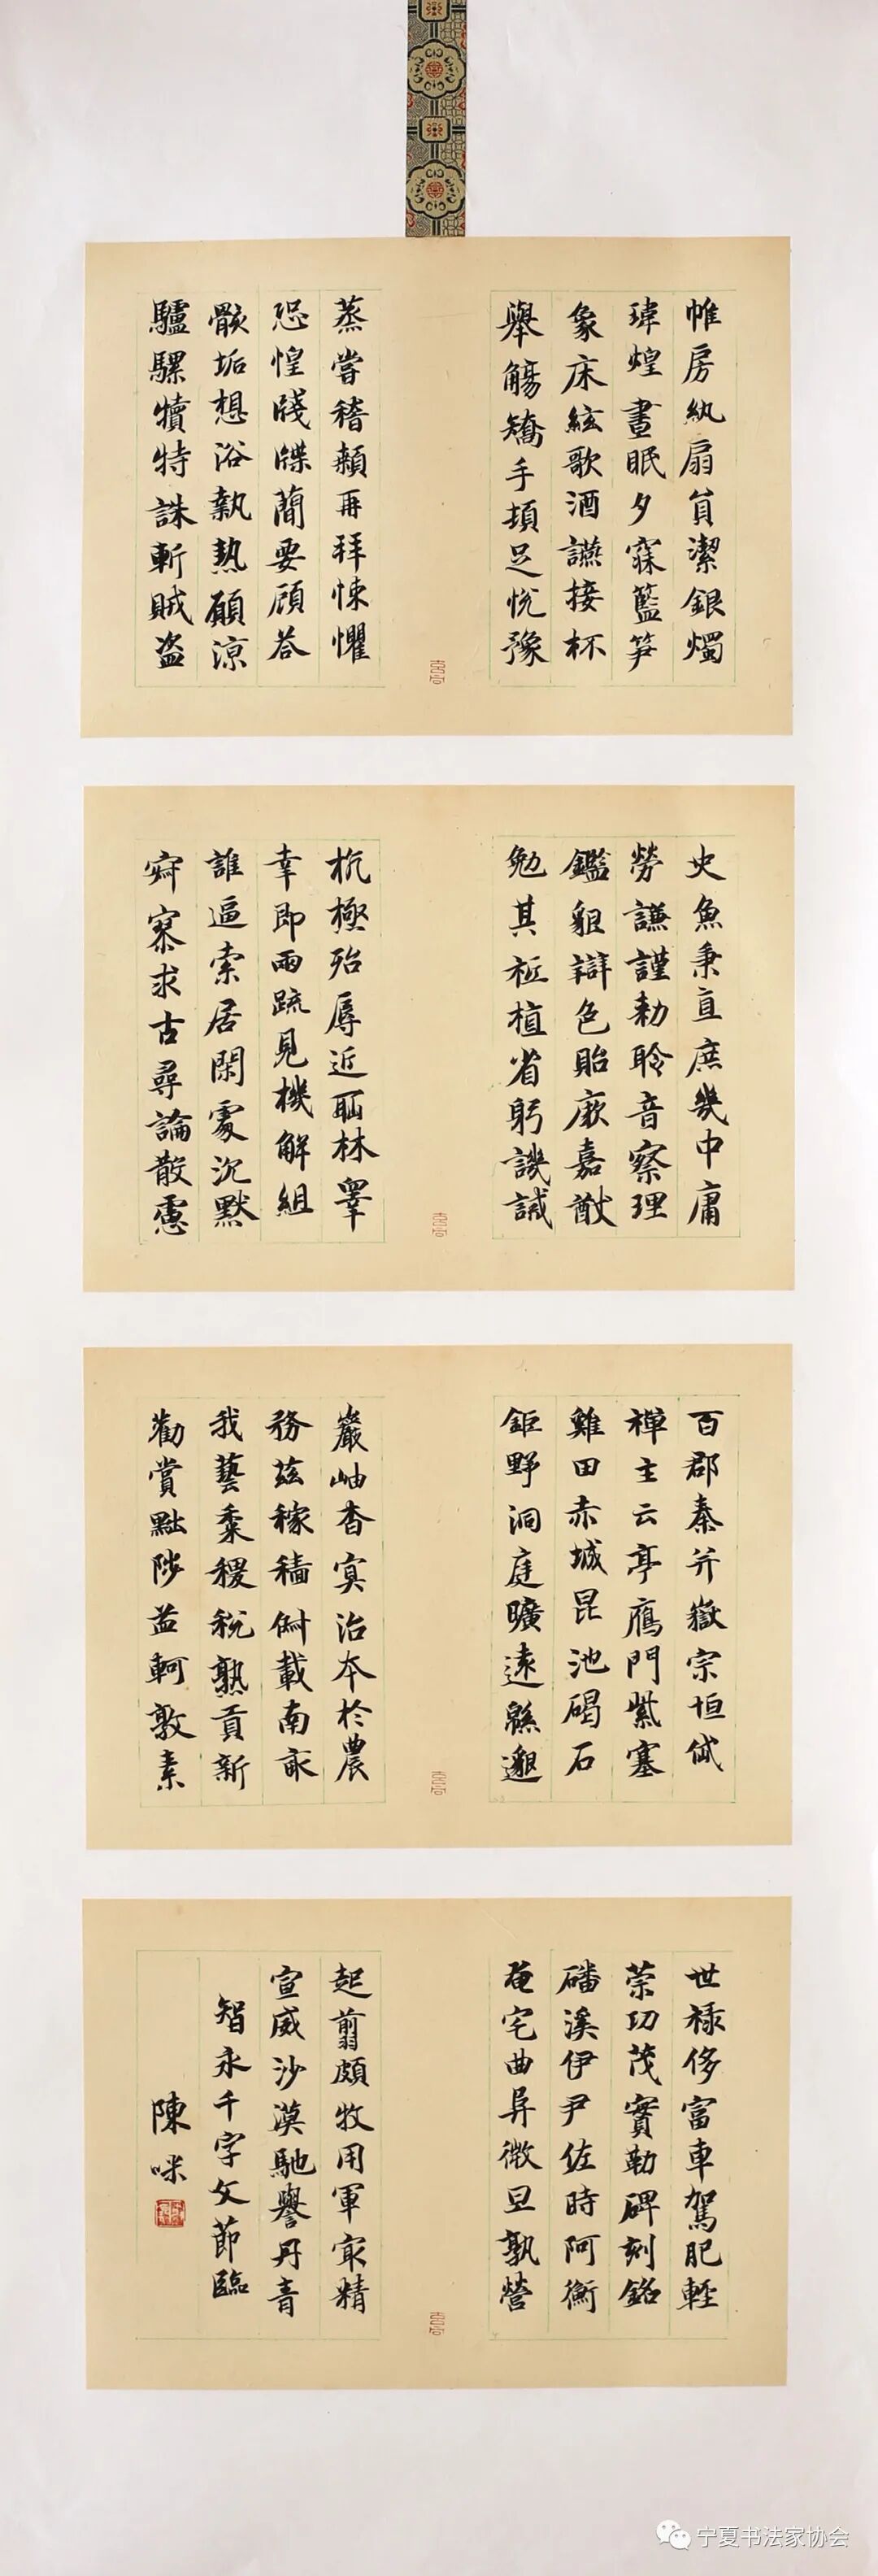 帷房紈扇員潔銀燭
瑋煌晝眠夕寐藍笋
象床絃歌酒讌接杯
舉觴矯手頓足悅豫
蒸嘗稽顙再拜悚懼
恐惶牋牒蕳要顧荅
骸垢想浴執熱願涼
驢騾犢特誅斬賊盜
史魚秉直庶幾中庸
勞謙謹勑聆音察理
鑑貌辯色貽厥嘉猷
勉其祗植省躬譏誡
抗極殆辱近恥林皋
幸即兩疏見機解組
誰逼索居閑處沉默
寂寥求古尋論散慮
百郡秦并嶽宗恒岱
禪主云亭鴈門紫塞
雞田赤城昆池碣石
鉅野洞庭曠遠緜邈
巖岫杳冥治本於農
務茲稼穡俶載南畝
我藝黍稷稅熟貢新
勸賞黜陟孟軻敦素
世祿侈富車駕肥輕
榮功茂實勒碑刻銘
磻溪伊尹佐時阿衡
奄宅曲阜微旦孰營
起翦頗牧用軍最精
宣威沙漠馳譽丹青
智永千字文節臨
陳咪
宁夏书法家协会